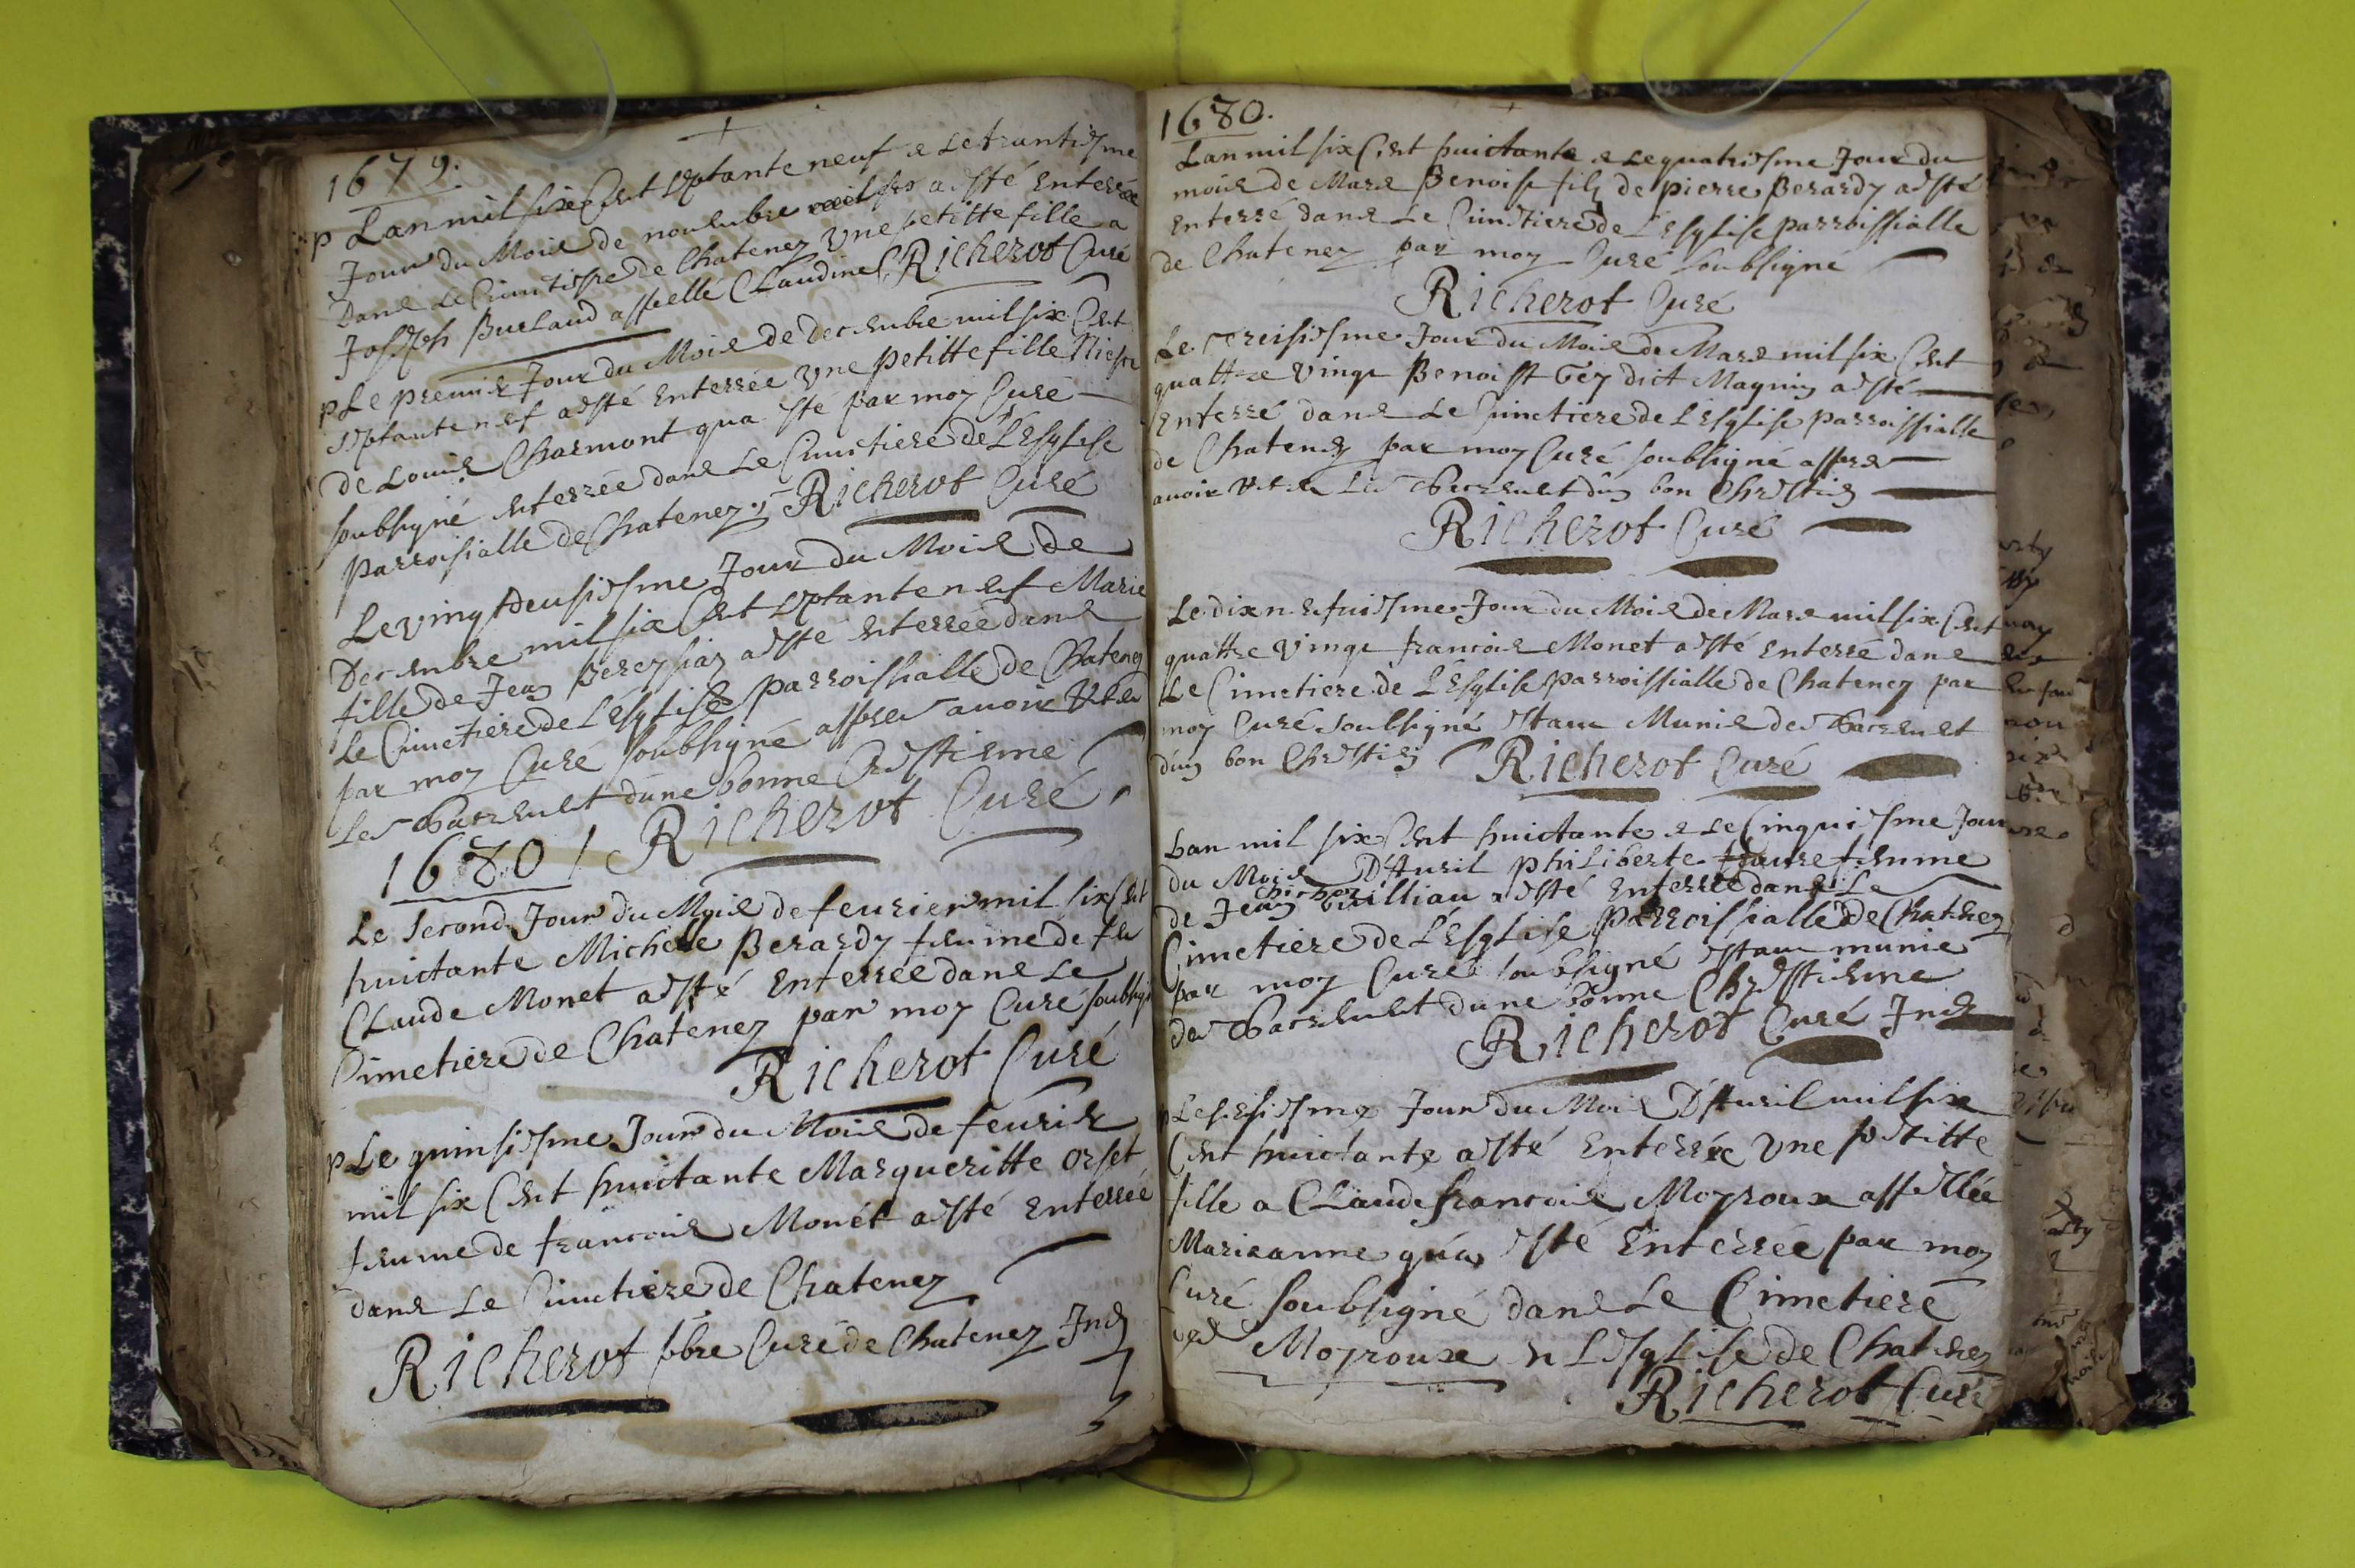 1679.
p Lan mil six Cent septante neuf & Le trantiesme
Jour du Mois de nouembre a esté Enterrée
Dans Le Cimitiere de Chatenez Une petitte fille a
Joseph Burlaud appellé Claudine Richerot Curé
p Le premier Jour du Mois de decembre mil six Cent
septante neuf a esté Enterrée Une petitte fille
de Louis Charmont qua esté par moy Curé
soubsigné enterrée dans Le Cimetiere de L'Esglise
parroisialle de Chatenez Richerot Curé
Le vingt deusiesme Jour du Mois de
Decembre mil six Cent septante neuf Marie
fille de Jean a esté enterrée dans
Le Cimetiere de L'esglise parroissialle de Chatenez
par moy Curé soubsigné appres auoir Receu
Les Sacrement dune bonne Crestienne
1680 / Richerot Curé
Le Second Jour du Mois de feurier mil six Cent
huictante Michelle Berardy femme de feu
Claude Monet a esté Enterrée dans Le
Cimetiere de Chatenez par moy Curé soubsig
Richerot Curé
p Le quinsiesme Jour du Mois de feurier
mil six Cent huictante Margueritte Orset
femme de francois Monet a esté Enterrée
dans Le Cimetiere de Chatenez
Richerot pbre Curé de Chatenez Ind
1680.
Lan mil six Cent huictante & Le quatriesme Jour du
mois de Mars Benoist filz de pierre Berardy a esté
Enterré dans Le Cimetiere de L'Esglise parroissialle
de Chatenez par moy Curé soubsigné
Richerot Curé
Le Treisiesme Jour du Mois de Mars mil six Cent
quattre Vingt Benoisst Gey dict Magnin a esté
Enterré dans Le Cimetiere de L'Esglise parroissialle
de Chatenez par moy Curé soubsigné appres
auoir Receu Les Sacrement dun bon Chrestien
Richerot Curé
Le dix neufuiesme Jour du Mois de Mars mil six Cent
quattre Vingt francois Monet a esté Enterré dans
Le Cimetiere de L'Esglise parroissialle de Chatenez par
moy Curé soubsigné estant Munis des Sacrement
dun bon Chrestien Richerot Curé
Lan mil six Cent huictante & Le Cinquiesme Jour
du Mois D'Auril philiberte faure femme
de Jean Guilliau a esté Enterrée dans Le
Cimetiere de L'Esglise parroissialle de Chatenez
par moy Curé soubsigné estant munie
des Sacrement dune bonne Chresstienne
Richerot Curé Ind
p Le sesiesme Jour du Mois D'Auril mil six
Cent huictante a esté Enterrée Une petitte
fille a Claude francois Moyroux appellée
Marieanne qua esté Enterrée par moy
Curé soubsigné dans Le Cimetiere
des Moyroux en L'esglise de Chatenez
Richerot Curé